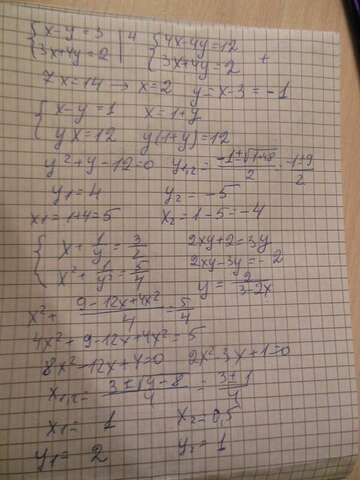 {x-y=3 | 4 {4x-4y=12
{3x+4y=2 | {3x+4y=2 +
7x=14 → x=2 y=x-3=-1
{x-y=1 x=1+y
{yx=12 y(1+y)=12
y²+y-12=0 y₁,₂=(-1±√(1+48))/2=(-1±9)/2
y₁=4 y₂=-5
x₁=1+4=5 x₂=1-5=-4
{x+1/y=3/2 2xy+2=3y
{x²+1/y²=5/4 2xy-3y=-2
y=2/(3-2x)
x²+(9-12x+4x²)/4=5/4
4x²+9-12x+4x²=5
8x²-12x+4=0 2x²-3x+1=0
x₁,₂=(3±√9-8)/4=(3±1)/4
x₁=1 x₂=0,5
y₁=2 y₂=1